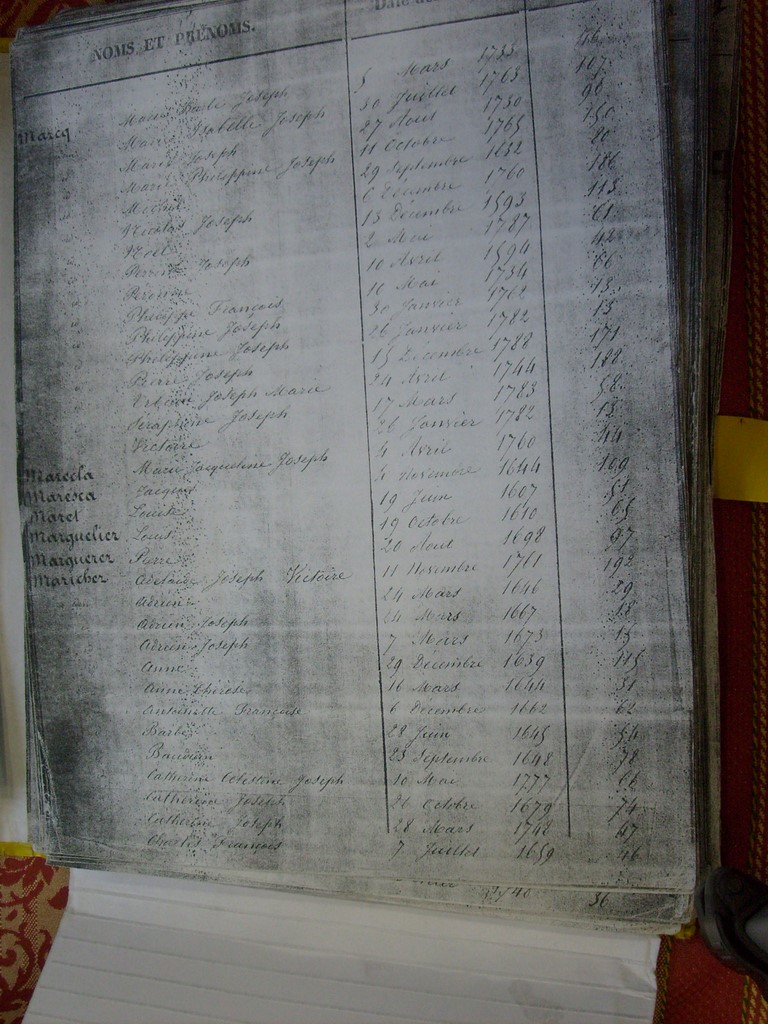 NOMS ET PRÉNOMS. Date de
Marie Barbe Joseph 5 Mars 1733 46
Marcq Marie Isabelle Joseph 30 Juillet 1763 107
Marie Joseph 27 Aout 1730 90
Marie Philippine Joseph 11 Octobre 1765 150
Michel 29 Septembre 1652 20
Nicolas Joseph 6 Décembre 1760 186
Noël 13 Décembre 1593 113
Perrine Joseph 2 Mai 1787 61
Peronne 10 Avril 1594 42
Philippe François 10 Mai 1734 66
Philippine Joseph 30 Janvier 1762 13
Philippine Joseph 26 Janvier 1782 13
Pierre Joseph 15 Décembre 1788 171
Urbain Joseph Marie 24 Avril 1744 128
Séraphine Joseph 17 Mars 1783 58
Victoire 26 Janvier 1782 12
Marcela Marie Jacqueline Joseph 4 Avril 1760 44
Maresca Jacques 4 Novembre 1644 109
Maret Louise 19 Juin 1607 51
Marquelier Louis 19 Octobre 1610 65
Marquerer Pierre 20 Aout 1698 97
Maricher Adelaïde Joseph Victoire 11 Novembre 1761 192
Adrien 24 Mars 1646 29
Adrien Joseph 24 Mars 1667 18
Adrien Joseph 7 Mars 1673 15
Anne 29 Décembre 1639 115
Anne Thérèse 16 Mars 1644 31
Antoinette Françoise 6 Décembre 1662 62
Barbe 28 Juin 1645 54
Bauduin 23 Septembre 1648 78
Catherine Célestine Joseph 10 Mai 1777 66
Catherine Joseph 26 Octobre 1679 74
Catherine Joseph 28 Mars 1742 47
Charles François 7 Juillet 1659 46
1740 36